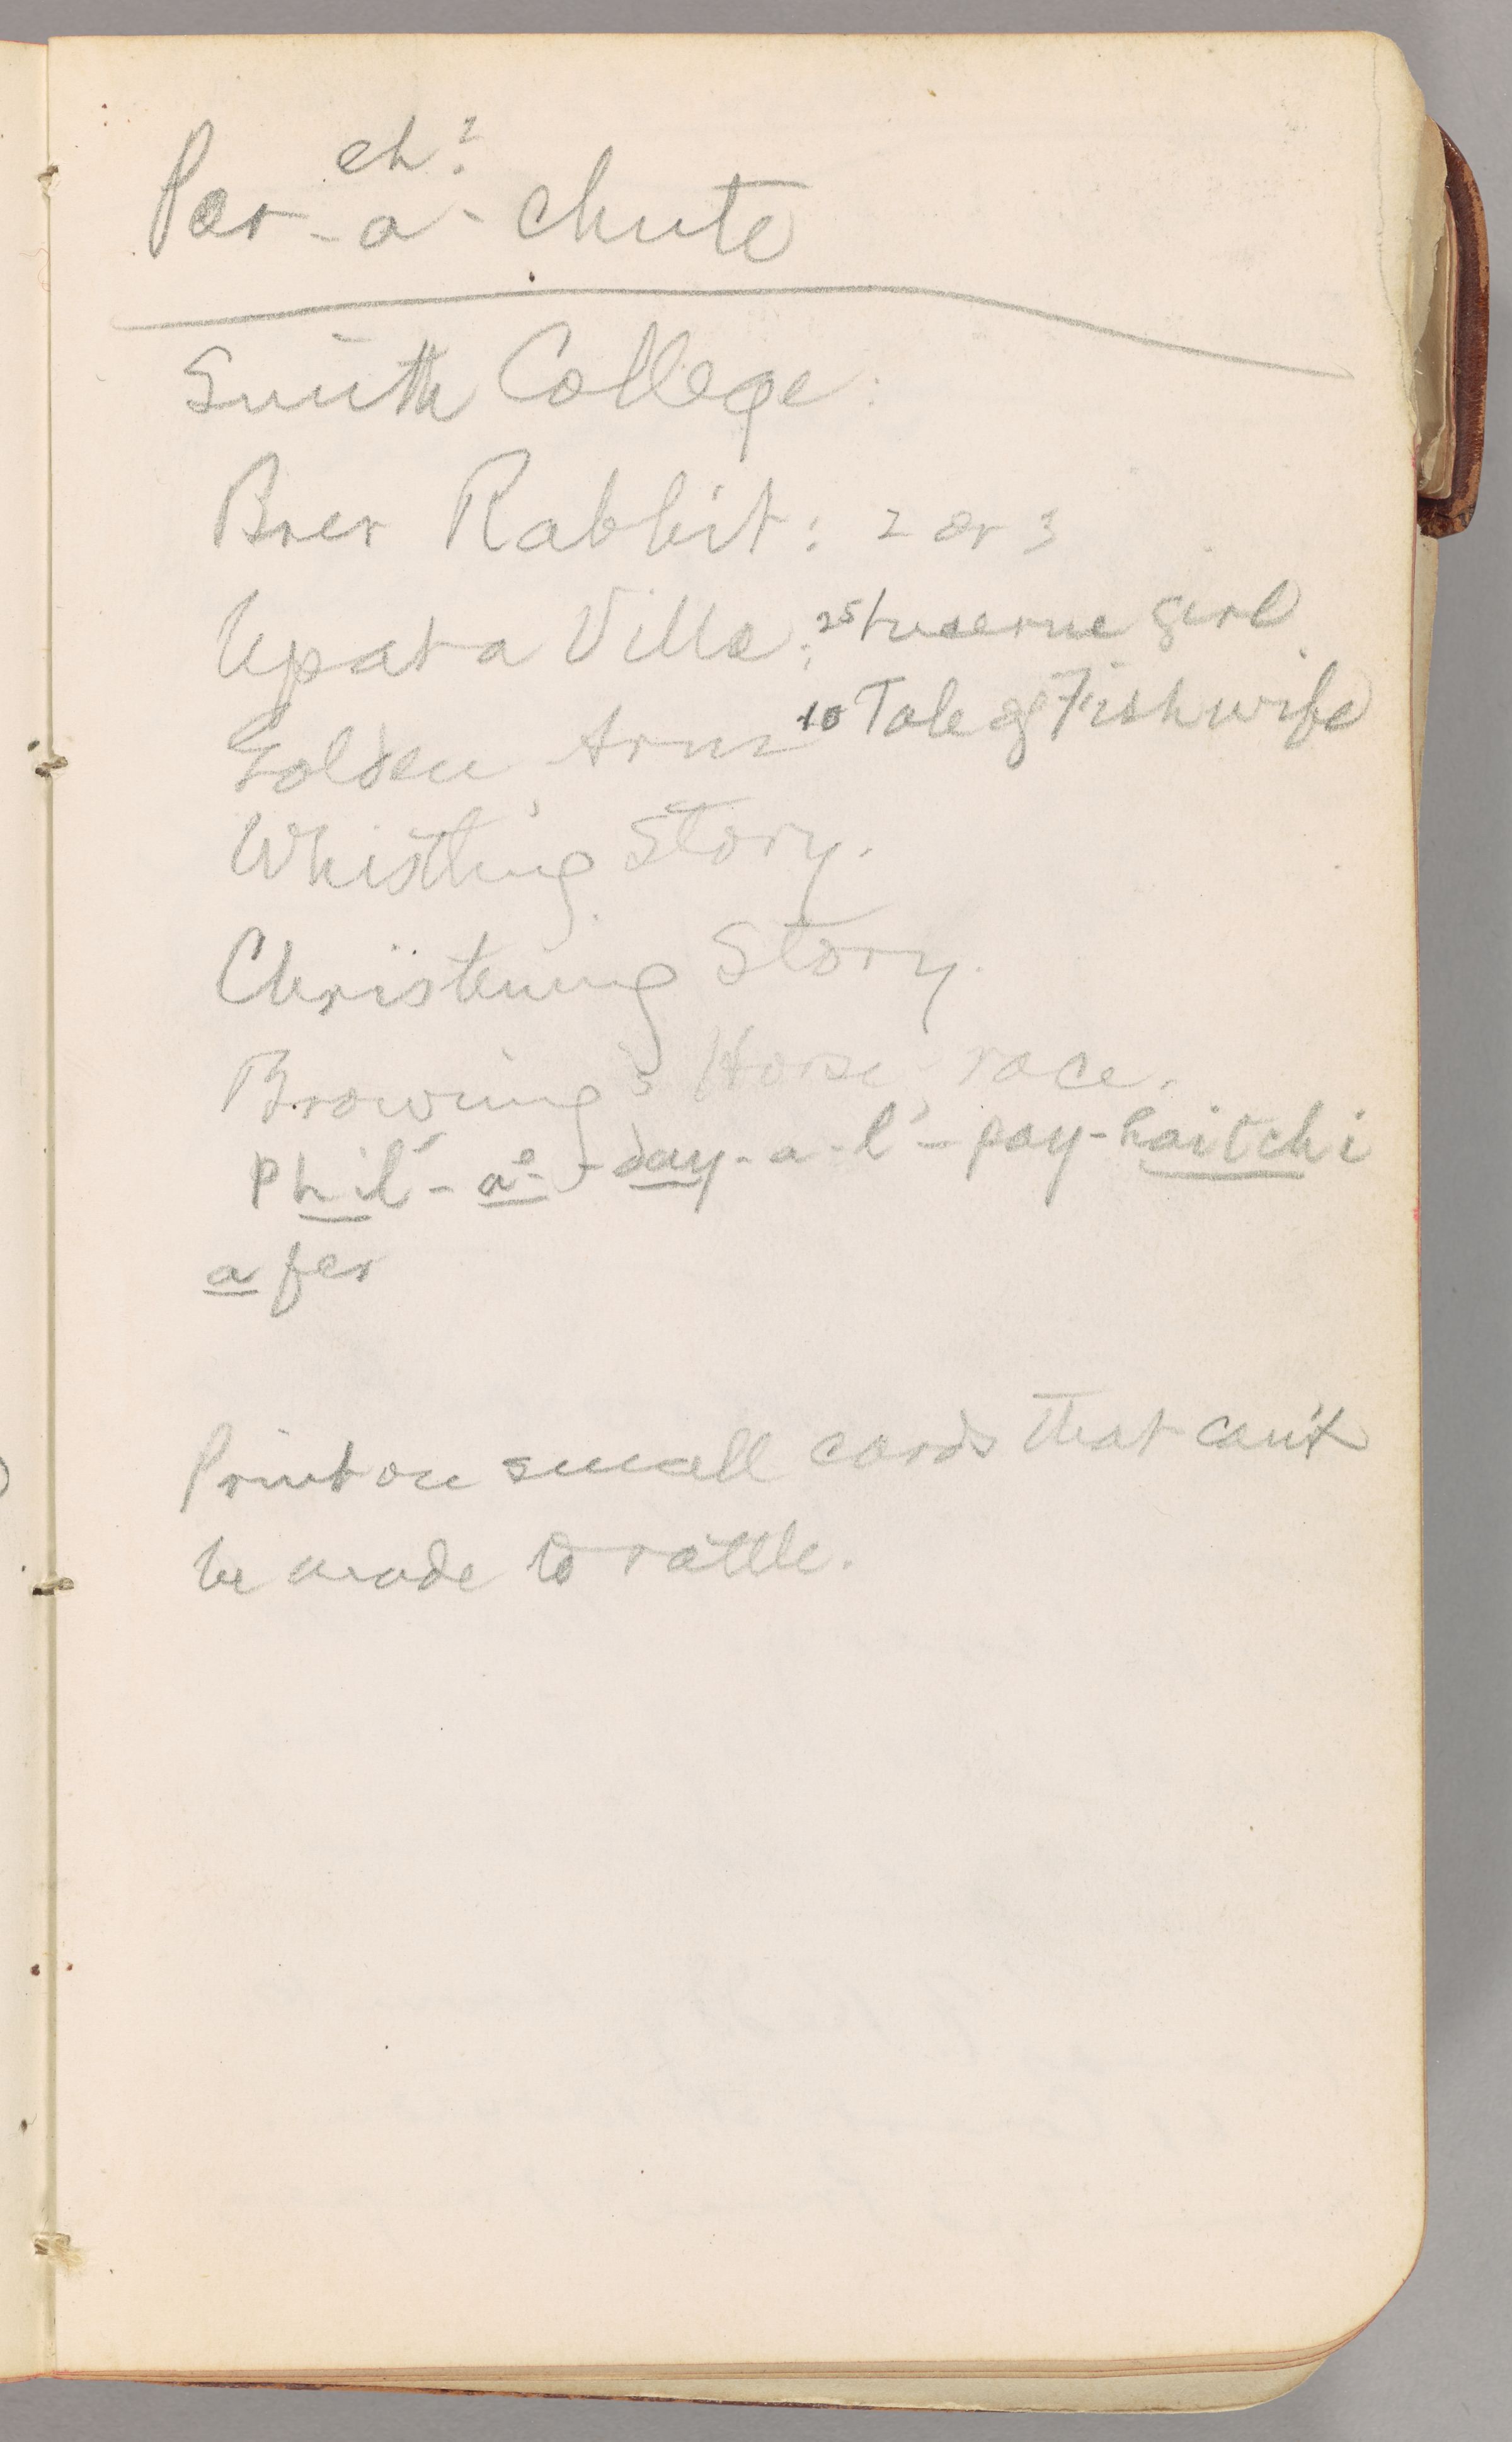 eh?
Par-a-chute
Smith College:
Brer Rabbit: 2 or 3
Up at a Villa: 25 Lucerne girl
Golden Arm 10 Tale of Fishwife
Whistling Story.
Christening Story.
Browning's Horse-race.
Phil'-a- -day-a-l'-pay-haitchi
a fer
Print on small cards that can't
be made to rattle.